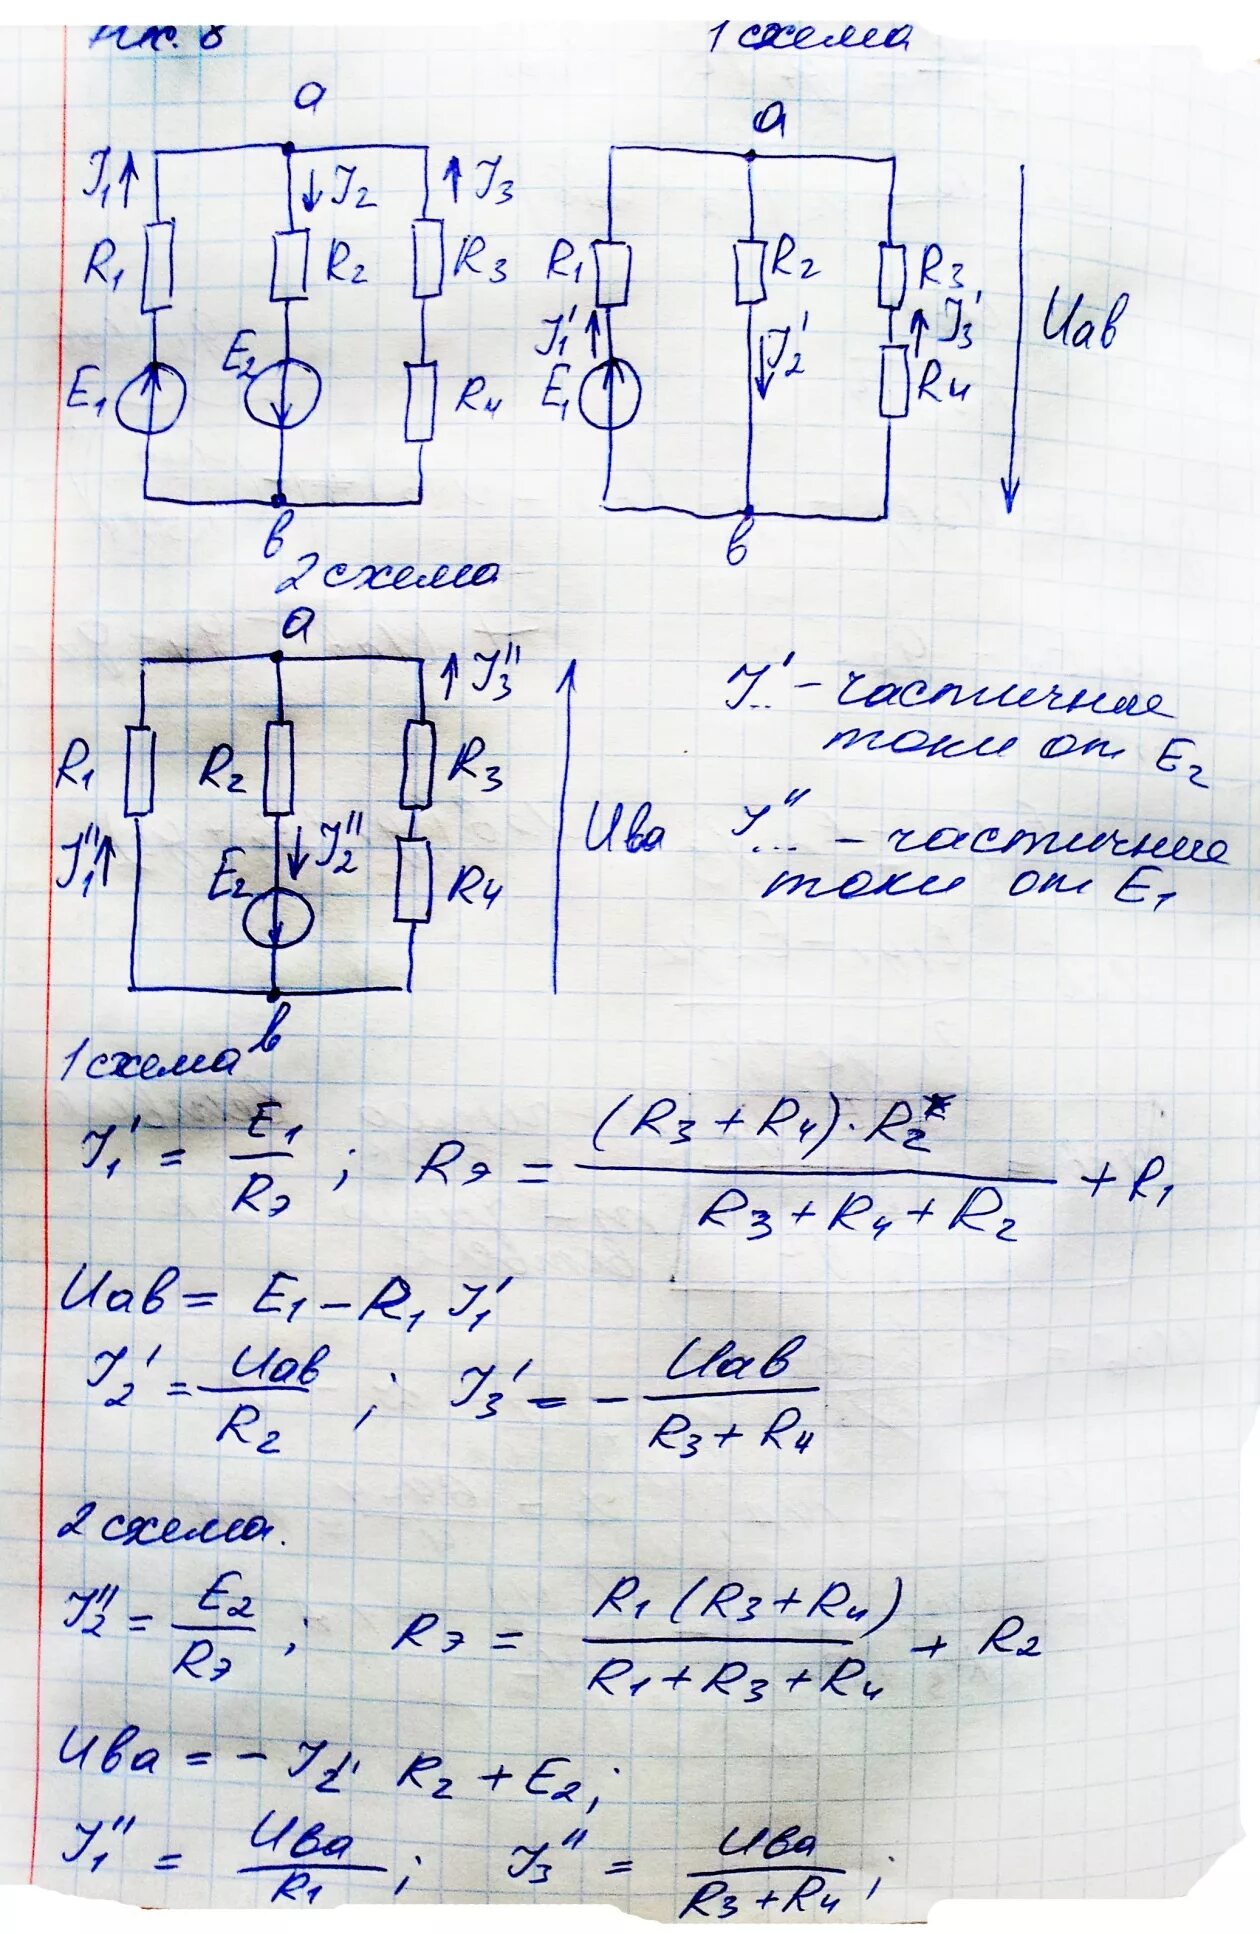 1 схема
a
I₁ I₂ I₃
R₁ R₂ R₃
E₁ E₂ R₄
в
a
R₁ R₂ R₃
I₁' I₂' I₃' Uав
E₁ R₄
в
2 схема
a
I₃''
R₁ R₂ R₃
I₁'' I₂'' Uва
E₂ R₄
в
I'... – частичные
токи от E₂
I''... – частичные
токи от E₁
1 схема
I₁' = E₁/Rэ ; Rэ = (R₃ + R₄)·R₂/(R₃ + R₄ + R₂) + R₁
Uав = E₁ – R₁ I₁'
I₂' = Uав/R₂ ; I₃' = – Uав/(R₃ + R₄)
2 схема.
I₂'' = E₂/Rэ ; Rэ = R₁(R₃+R₄)/(R₁+R₃+R₄) + R₂
Uва = – I₂'' R₂ + E₂;
I₁'' = Uва/R₁ ; I₃'' = Uва/(R₃+R₄) ;